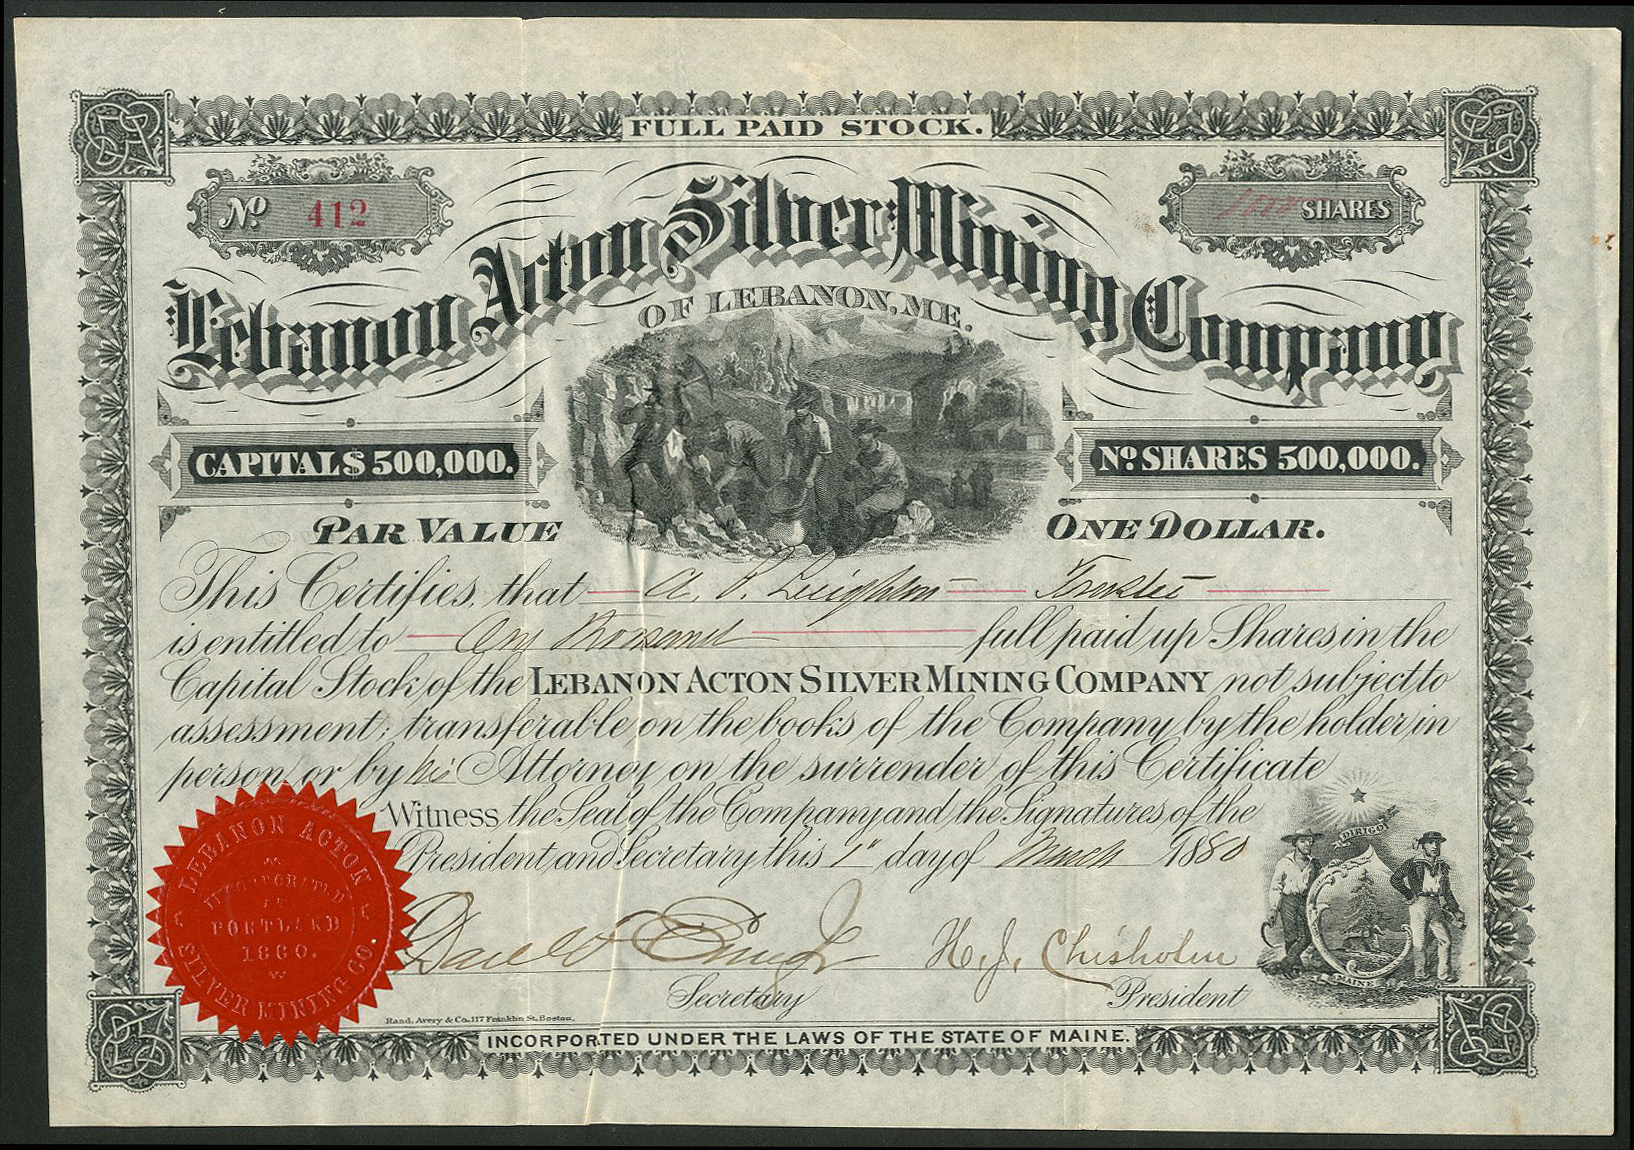 FULL PAID STOCK.
No. 412
SHARES
Lebanon Acton Silver Mining Company
OF LEBANON, ME.
CAPITAL $500,000.
No. SHARES 500,000.
PAR VALUE ONE DOLLAR.
This Certifies, that A. P. Leighton Trustee
is entitled to One Thousand full paid up Shares in the
Capital Stock of the LEBANON ACTON SILVER MINING COMPANY not subject to
assessment; transferable on the books of the Company by the holder in
person, or by his Attorney on the surrender of this Certificate
Witness the Seal of the Company and the Signatures of the
President and Secretary this 1st day of March 1880
DIRIGO
MAINE
LEBANON ACTON
SILVER MINING CO.
INCORPORATED
AT
PORTLAND
1880.
H. J. Chisholm
Secretary
President
Rand, Avery & Co. 117 Franklin St. Boston.
INCORPORTED UNDER THE LAWS OF THE STATE OF MAINE.